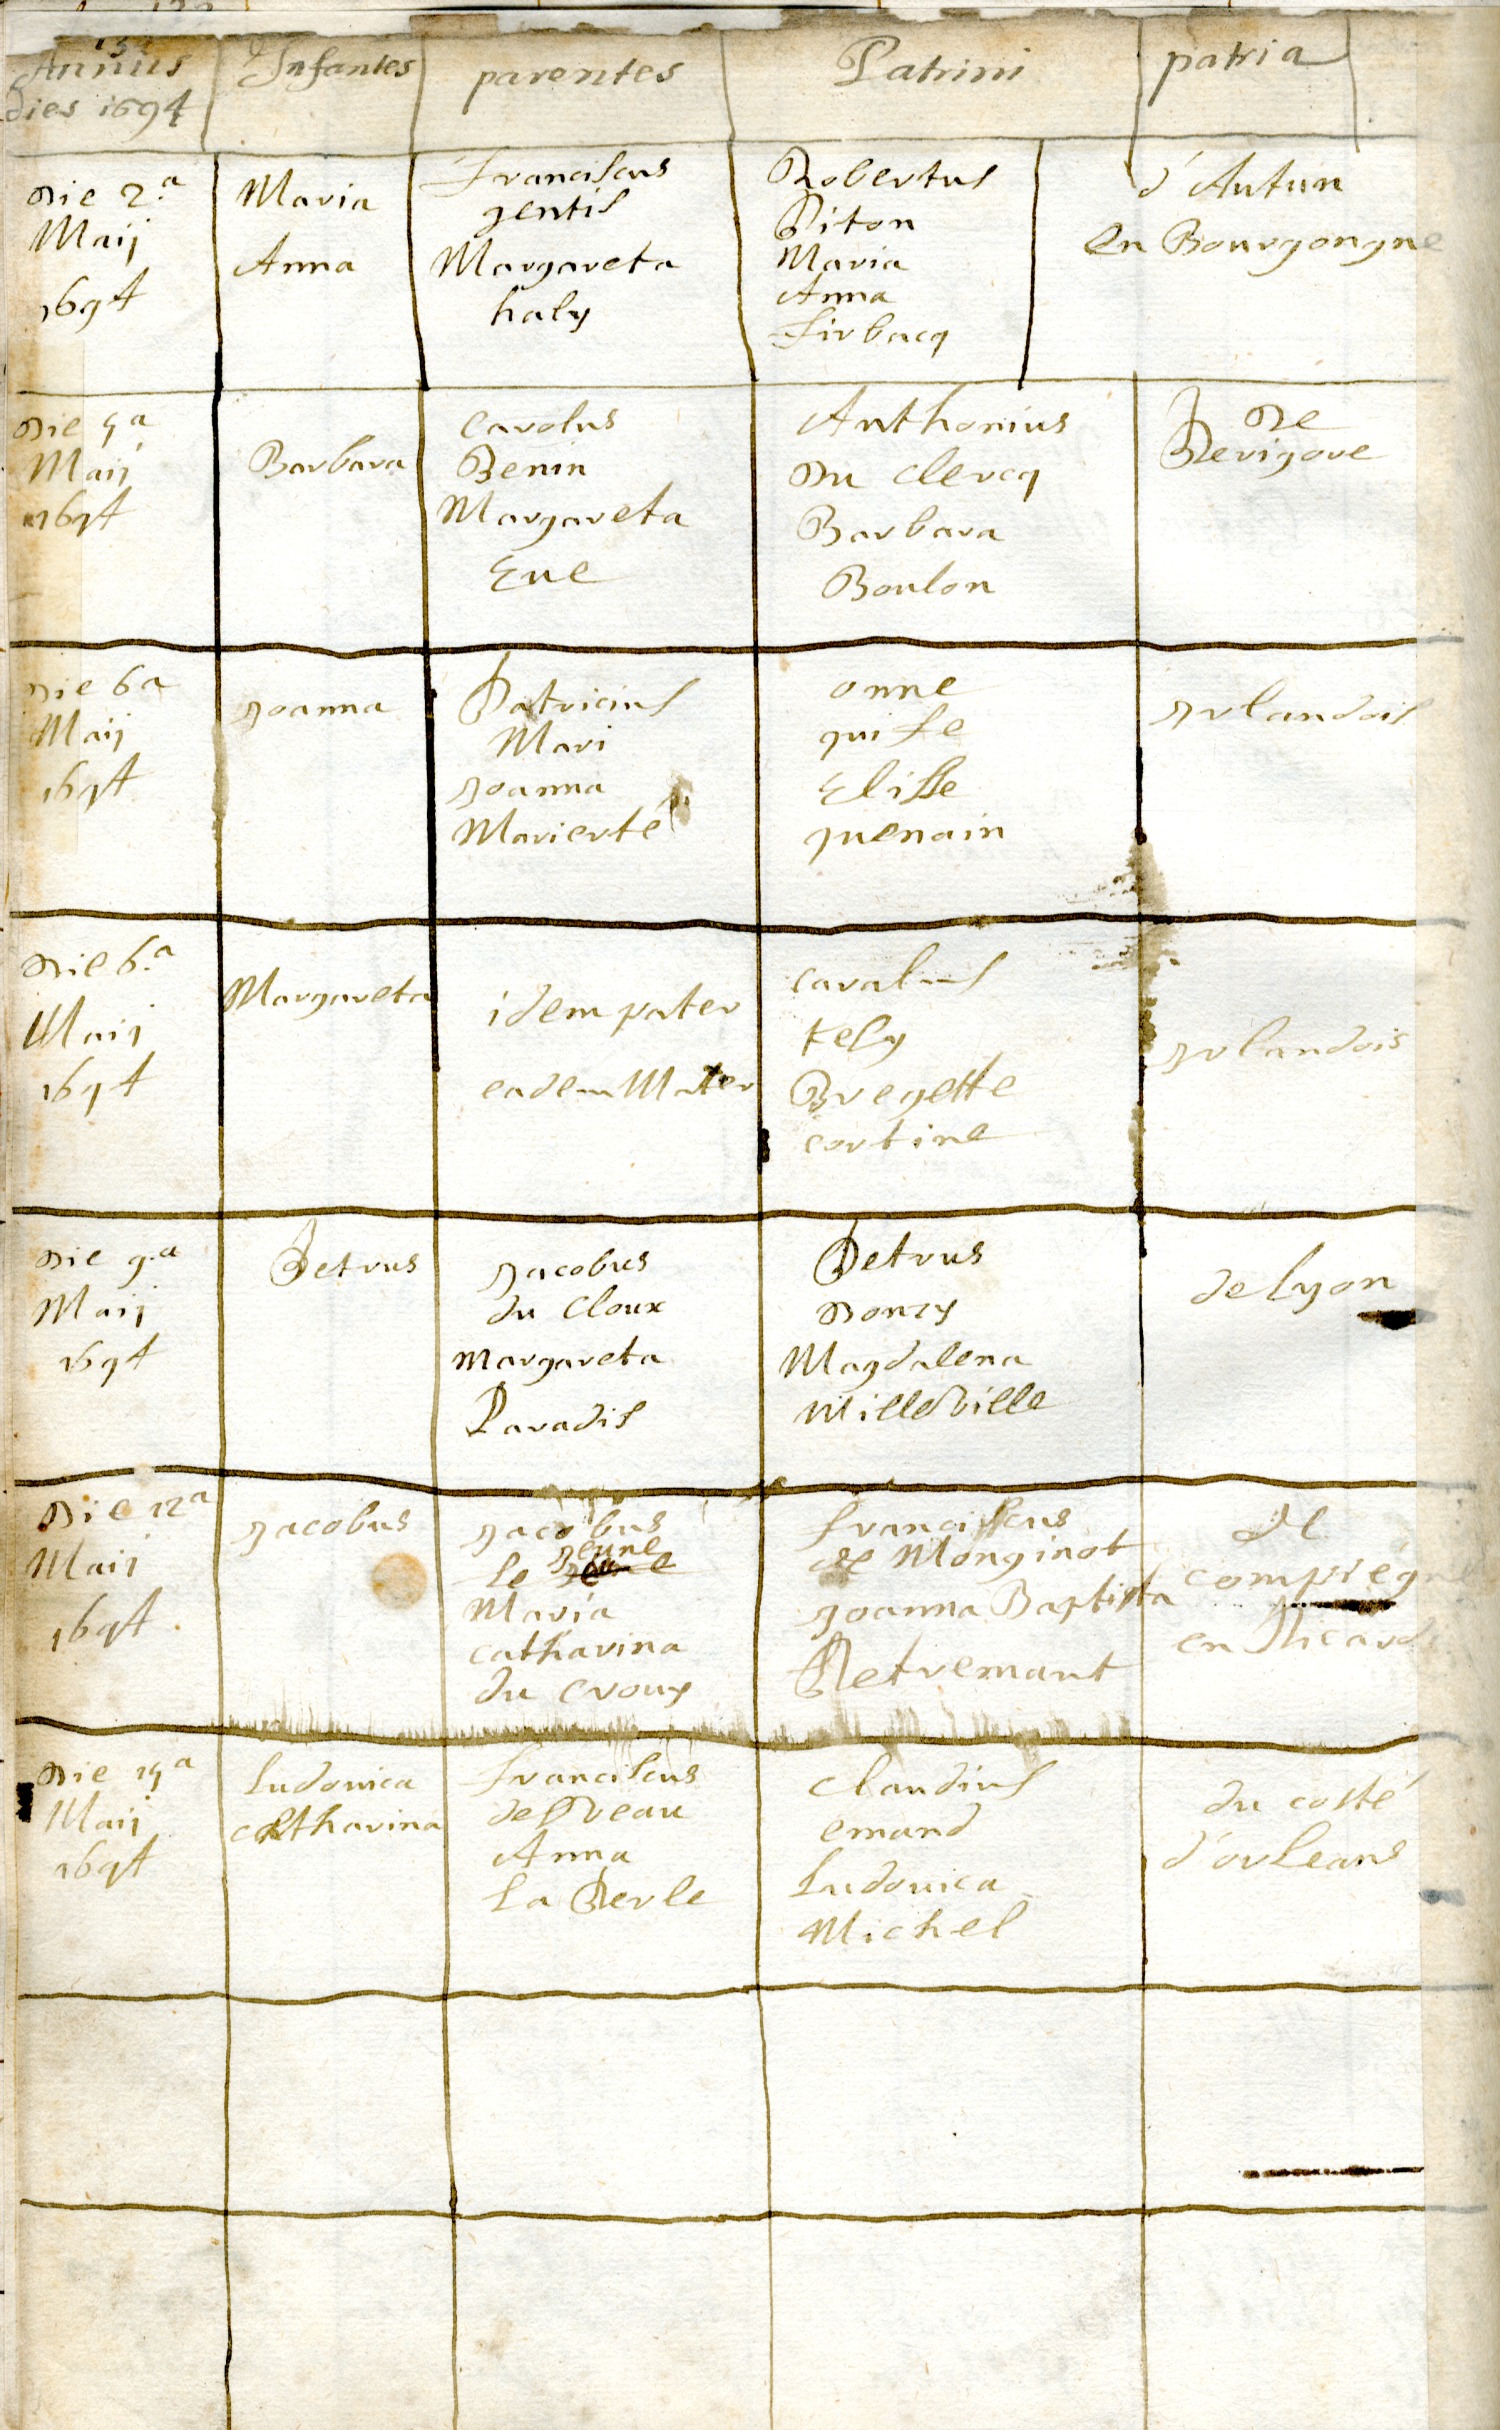 Annus
dies 1694
Infantes
parentes
Patrini
patria
Die 2.a
Maij
1694
Maria
Anna
franciscus
gentis
Margareta
haly
Robertus
Piton
Maria
Anna
firbacq
d'Autun
En Bourgongne
Die 5a
Maij
1694
Barbara
Carolus
Benin
Margareta
Eue
Anthonius
Du clercq
Barbara
Boulon
De
Perigore
Die 6a
Maij
1694
Joanna
Patricius
Mari
Joanna
Marierté
onne
quife
Elisse
quenain
Irlandois
Die 6.a
Maij
1694
Margareta
idem pater
eadem Mater
caralus
kely
Bregette
cortine
Irlandois
Die 9.a
Maij
1694
Petrus
Jacobus
du Cloux
Margareta
Paradis
Petrus
Donzy
Magdalena
Milleville
de lyon
Die 12a
Maij
1694
Jacobus
Jacobus
Jeune
le
Maria
catharina
du crouy
franciscus
de Monginot
Joanna Baptista
Petremant
de
compiégne
en Picardi
Die 15a
Maij
1694
Ludovica
catharina
franciscus
despreau
Anna
la Perle
Claudius
emand
Ludovica
Michel
du costé
d'orleans